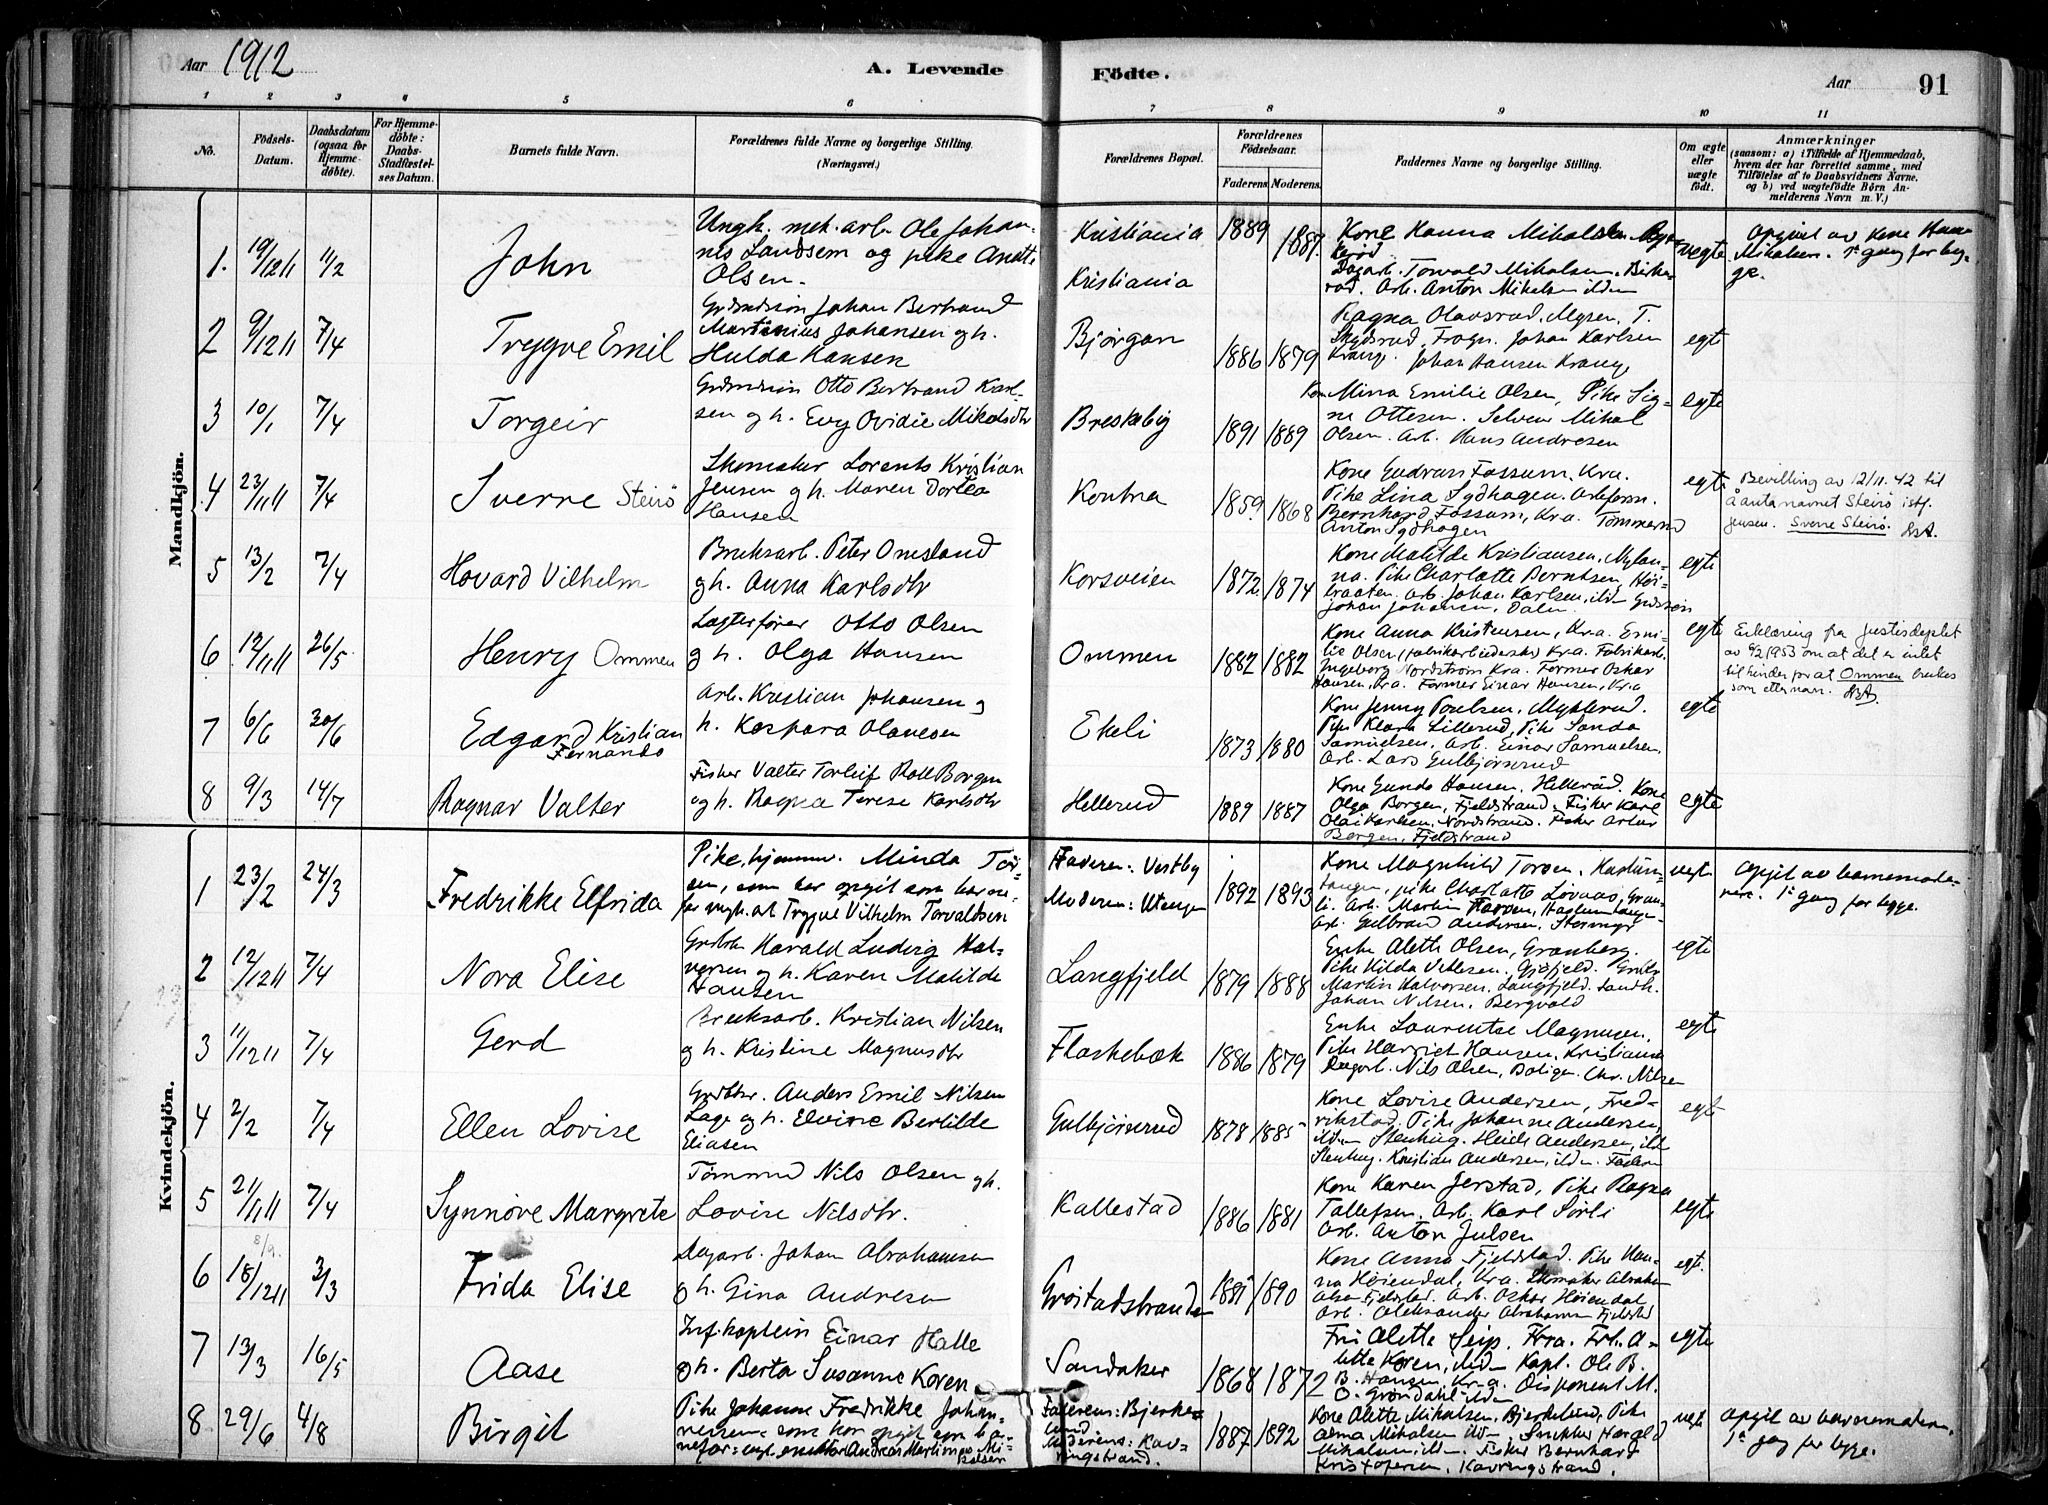 Aar 1912
A. Levende Födte.
Aar 91
1 2 3 4 5 6 7 8 9 10 11
No.
Födsels-Datum.
Daabsdatum (ogsaa for Hjemme-döbte).
For Hjemme-döbte: Daabs-Stadfæstel-ses Datum.
Barnets fulde Navn.
Forældrenes fulde Navne og borgerlige Stilling. (Næringsvei.)
Forældrenes Bopæl.
Forældrenes Födselsaar.
Faderens. Moderens.
Faddernes Navne og borgerlige Stilling.
Om ægte eller uægte født.
Anmærkninger
(saasom: a) i Tilfælde af Hjemmedaab, hvem der har forrettet samme, med Tilföielse af to Daabsvidners Navne, og b) ved uægtefödte Börn An-melderens Navn m. V.)
Mandkjön.
1. 19/12 11 11/2 John
Ungk. mek. arb. Ole Johan-
nes Landsem og pike Anette
Olsen.
Kristiania
Kristiania
1889 1887
Kone Hanna Mikalsen
Dagarb. Torvald Mikalsen.
Arb. Anton Mikalsen ildm
uegte
Opgivet av kone Hanna
Mikalsen. 1ste gang for beg-
ge.
2 9/12 11 7/4 Trygve Emil
Grdmdssøn Johan Bertrand
Martinius Johansen og h.
Hulda Hansen
Bjørgan
1886 1879
Ragna Olavsrud, Mysen. T.
Frogn. Johan Karlsen
Krange. Johan Hansen Krange
egte
3 10/1 7/4 Torgeir
Grdmdssøn Otto Bertrand Karl-
sen og h. Evy Ovidie Mikalsdtr
Breskeby
1891 1889
Kone Mina Emilie Olsen, Pike Sig-
ne Ottesen. Selveier Mikal
Olsen. Arb. Hans Andresen
egte
4 23/11 11 7/4 Sverre Steirö
Skomaker Lorents Kristian
Jensen og h. Maren Dortea
Hansen
Kontra
1859 1868
Kone Gudrun Fossum, Kra.
Pike Lina Sydhagen. Arbform.
Bernhard Fossum, Kra. Tømmermd
Anton Sydhagen
egte
Bevilling av 12/11.42 til
å anta navnet Steirö istf.
Jensen. Sverre Steirö.
5 13/2 7/4 Hovard Vilhelm
Bruksarb. Peter Onesland
og h. Anna Karlsdtr
Korsveien
1872 1874
Kone Matilde Kristiansen,
Pike Charlotte Berntsen, Høi-
braaten. Arb. Johan Karlsen, ildm
Johan Johansen, Dalen.
egte
6 12/11 11 26/5 Henry Ommen
Lagterfører Otto Olsen
og h. Olga Hansen
Ommen
1882 1882
Kone Anna Kristensen, Kra. Emi-
lie Olsen, fabrikarbeiderske Kra. Fabrikarb.
Ingeborg Nordstrøm Kra. Former Oskar
Hansen, Kra. Former Einar Hansen, Kra
egte
Erklæring fra Justisdeptet
av 9/2 1953 om at det er intet
til hinder for at Ommen brukes
som etternavn.
7 6/6 30/6 Edgard Kristian
Fernando
Arb. Kristian Johansen og
h. Kaspara Olavesen
Ekeli
1873 1880
Kone Jenny Poulsen, Myklerud.
Pike Klara Lillerud, Pike Sanda
Samuelsen, Arb. Einar Samuelsen.
Arb. Lars Gulbjørnrud
egte
8 9/3 14/7 Ragnar Valter
Fisker Valter Torleif Roll Borgen
og h. Ragna Terese Karlsdtr
Hellerud
1889 1887
Kone Gunda Hansen, Hellerud. Kone
Olga Borgen, Fjeldstrand. Fisker Karl
Olai Karlsen, Nordstrand. Fisker Artur
Borgen, Fjeldstrand
egte
Kvindekjön.
1 23/2 24/3 Fredrikke Elfrida
Pike, hjemmev. Minda Tor-
sen, som har opgit som barne-
far ungk. at Trygve Vilhelm Torvaldsen
Faderen: Vestby
Moderen: Utengen
1892 1893
Kone Magnhild Torsen,
pike Charlotte Løvaas,
Arb. Martin Torsen,
Arb. Gulbrand Andersen, Stormyr
uegte
Opgit av barnemode-
ren. 1ste gang for begge.
2 12/12 11 7/4 Nora Elise
Grdbr. Harald Ludvig Hal-
vorsen og h. Karen Matilde
Hansen
Langfjeld
1879 1888
Enke Alette Olsen, Granberg.
Pike Hilda Vetlesen,
Martin Halvorsen, Langfjeld. Landh.
Johan Nilsen, Bergvold
egte
3 11/12 11 7/4 Gerd
Bruksarb. Kristian Nilsen
og h. Kristine Magnusdtr
Flaskebæk
1886 1879
Enke Laurentse Magnusen.
Pike Harriet Hansen, Kristiania
Dagarb. Nils Olsen, Boligen. Chr. Nilsen
egte
4 2/2 7/4 Ellen Lovise
Grdbr. Anders Emil Nilsen
Lage og h. Elvine Bertilde
Eliasen
Gulbjørnrud
1878 1885
Kone Lovise Andersen, Fred-
rikstad, Pike Johanne Andersen,
ildm Stenberg. Heide Andersen, ildm
Stenberg. Kristian Andersen, ildm. Faderen
egte
5 21/11 11 7/4 Synnöve Margrete
Tömmermd Nils Olsen og h.
Lovise Nilsdtr.
Kallestad
1886 1881
Kone Karen Jerstad, Pike Ragna
Tollefsen, Arb. Karl Sørli
Arb. Anton Julsen
egte
8/9.
6 15/12 11 3/3 Frida Elise
Dagarb. Johan Abrahamsen
og h. Gina Andresen
Grøstadstranden
1881 1890
Kone Anna Fjeldstad. Pike Han-
na Høiendal, Kra. Skomaker Abraham
Fjeldstad. Arb. Oskar Høiendal
Arb. Aleksander Abrahamsen Fjeldstad
egte.
7 13/3 16/5 Aase
Inf. kaptein Einar Halle
og h. Berta Susanne Koren
Sandaker
1868 1872
Fru Alette Seip. Kra. Frk. A-
lette Koren, ildm Kapt. Ole B.
B. Hansen, Kra. Disponent M.
O. Grøndahl ildm
egte
8 29/6 4/8 Birgit
Pike Johanne Fredrikke Johan-
nesen som har opgit som bar-
nefar ungk. Andreas Martinius Mi-
kalsen
Faderens: Bjerke-
lund
Moderens: Kav-
ringstrand.
1887 1892
Kone Alette Mikalsen, Bjerkelund, Pike
Alma Mikalsen ildm, Snekker Harald
Mikalsen ildm. Fisker Bernhard
Kristofersen, Kavringstrand.
uegte
Opgit av barnemoderen.
1ste gang for begge.